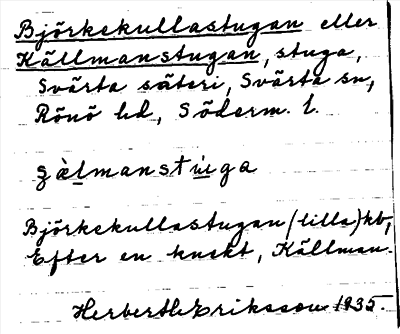 Björkekullastugan eller
Källmanstugan, stuga,
Svärta säteri, Svärta sn,
Rönö hd, Söderm. l.
Björkekullastugan (lilla) kb,
Efter en knekt, Källman.
Herberth Eriksson 1935.